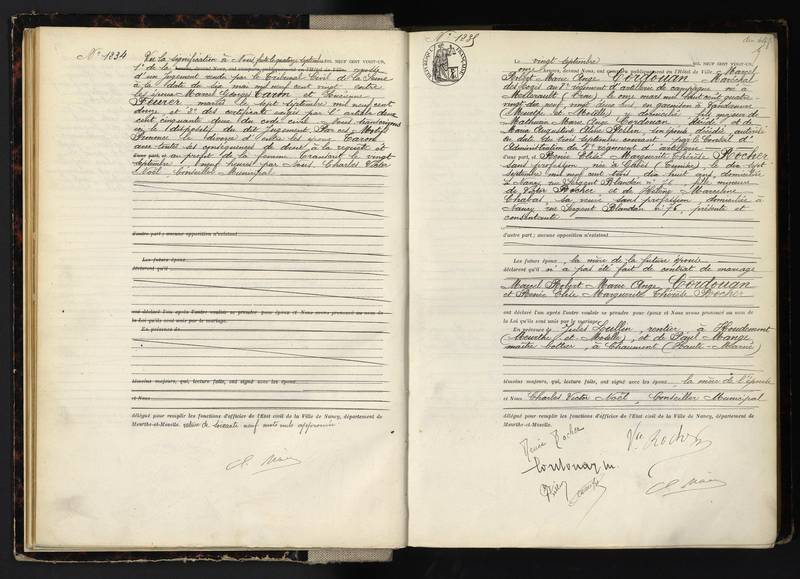 No 1234
Vu la signification à Nous faite le quatorze septembre MIL NEUF CENT VINGT-UN,
1° de la
d'un jugement rendu par le Tribunal Civil de la Seine
à la date du dix mai mil neuf cent vingt entre
les époux Marcel Georges Caron et Lucienne
mariés le sept septembre mil neuf cent
douze, et 2° des certificats exigés par l'article deux
cent cinquante deux du code civil Nous transcrivons
ici le dispositif du dit jugement Par ces Motifs
Prononce le divorce d'entre les époux Caron
avec toutes les conséquences de droit à la requête et
au profit de la femme Transcrit le vingt
septembre, heures par Nous Charles Victor
Noël, Conseiller Municipal
d'autre part ; aucune opposition n'existant
Les futurs époux
déclarent qu'il
ont déclaré l'un après l'autre vouloir se prendre pour époux et Nous avons prononcé au nom de
la Loi qu'ils sont unis par le mariage.
En présence de
témoins majeurs, qui, lecture faite, ont signé avec les époux
et Nous
délégué pour remplir les fonctions d'officier de l'Etat civil de la Ville de Nancy, département de
Meurthe-et-Moselle.
No 1235
Le vingt septembre MIL NEUF CENT VINGT-UN,
onze heures, devant Nous, ont comparu publiquement en l'Hôtel de Ville, Marcel
Robert Marie Ange Cordouan Maréchal
des logis au régiment d'artillerie de campagne, né à
Mellerault (Orne), le onze mai mil huit cent quatre
vingt dix neuf, vingt deux ans, en garnison à Vandoeuvre
(Meurthe et Moselle) y domicilié, fils majeur de
Marie Ange Cordouan décédé et de
Marie Augustine son épouse, décédée, autorisé
en date du trois septembre courant par le Conseil d'
Administration du régiment d'artillerie
d'une part, et Renée Clée Marguerite Thérèse Rocher
sans profession, née à le dix sept
septembre mil neuf cent trois dix huit ans, domiciliée
à Nancy, rue Sergent Blandan n° 76, fille mineure
de Victor Rocher et de Hélène Marceline
Chabas, sa veuve sans profession, domiciliée à
Nancy, rue Sergent Blandan n° 76, présente et
consentante
d'autre part ; aucune opposition n'existant
Les futurs époux, la mère de la future épouse
déclarent qu'il n'a pas été fait de contrat de mariage
Marcel Robert Marie Ange Cordouan
et Renée Clée Marguerite Thérèse Rocher
ont déclaré l'un après l'autre vouloir se prendre pour époux et Nous avons prononcé au nom de
la Loi qu'ils sont unis par le mariage
En présence de Jules rentier, à Houdemont
(Meurthe et Moselle), et de Paul Mange
maître bottier, à Chaumont (Haute-Marne)
témoins majeurs, qui, lecture faite, ont signé avec les époux, la mère de l'épouse
et Nous Charles Victor Noël, Conseiller Municipal
délégué pour remplir les fonctions d'officier de l'Etat civil de la Ville de Nancy, département de
Meurthe-et-Moselle.
Renée Rocher
Vve Rocher
Cordouan